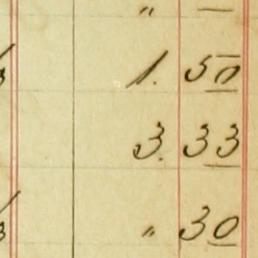 " —
1. 50
3. 33
" 30